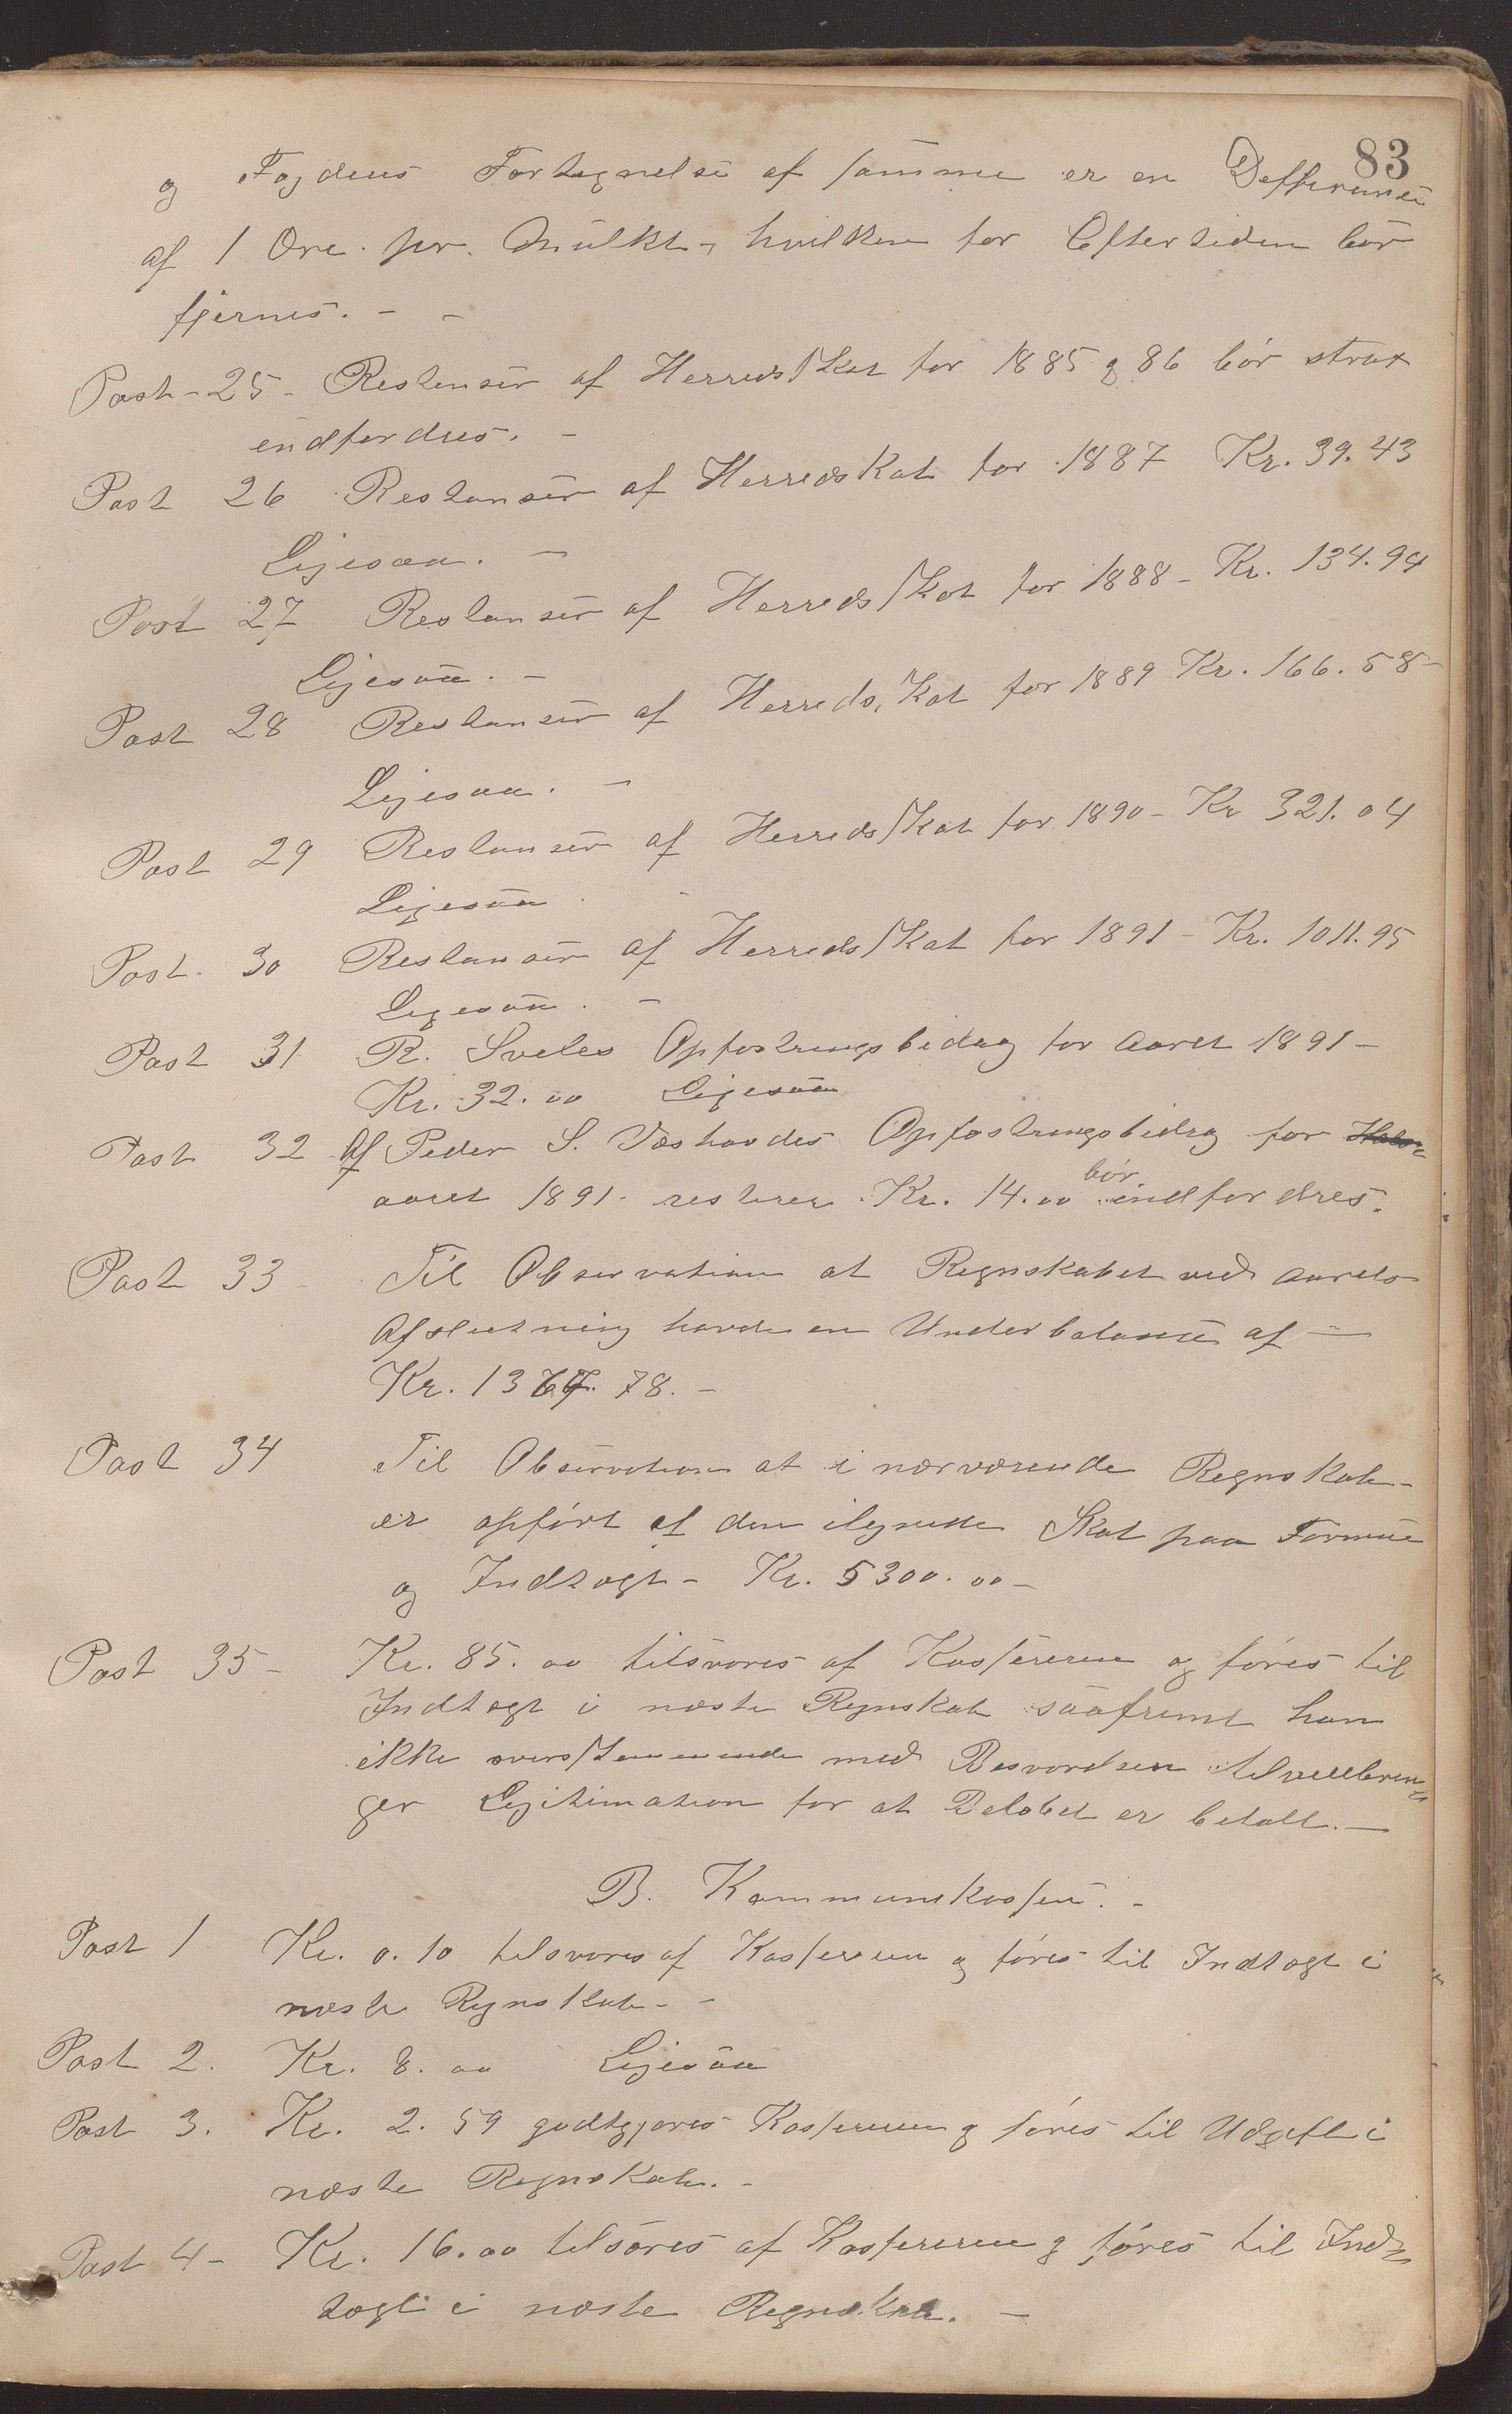 83
og Fogdens Fortegnelse af samme er en Defferense
af 1 Øre pr. Mulkt, hvilken for Eftertiden bør
fjernes. - -
Post - 25 - Restanser af Herredsskat for 1885 og 86 bør strax
indfordres. -
Post 26 Restanser af Herredskat for 1887 Kr. 39.43
Ligesaa. -
Post 27 Restanser af Herredsskat for 1888 - Kr. 134.94
Ligesaa. -
Post 28 Restanser af Herredsskat for 1889 Kr. 166.58 -
Ligesaa. -
Post 29 Restanser af Herredsskat for 1890 - Kr 321.04
Ligesaa.
Post. 30 Restanser af Herredsskat for 1891 - Kr. 1011.95
Ligesaa. -
Post 31 R. Sveles Opfostringsbidrag for Aaret 1891 -
Kr. 32.00 Ligesaa
Post 32 Af Peder S. Opfostringsbidrag for
aaret 1891 - resterer Kr. 14.00 bør indfordres.
Post 33 - Til Observation at Regnskabet ved Aarets
Afslutning havde en Underbalanse af -
Kr. 1367.78. -
Post 34 Til Observation at i nærværende Regnskab -
er opført af den ilignede Skat paa Formue
og Indtægt - Kr. 5300.00 -
Post 35 - Kr. 85.00 tilsvares af Kassereren og føres til
Indtægt i næste Regnskab saafremt han
ikke overstemmende med Besvarelsen tilveiebrin
ger Legitimation for at Beløbet er betalt. -
B. Kommunekassen. -
Post 1 Kr. 0.10 tilsvares af Kassereren og føres til Indtægt i
næste Regnskab - -
Post 2. Kr. 8.00 Ligesaa
Post 3. Kr. 2.59 godtgjøres Kassereren og føres til Udgift i
næste Regnskab. -
Post 4 - Kr. 16.00 tilsvares af Kassereren og føres til Ind-
tægt i næste Regnskab. -